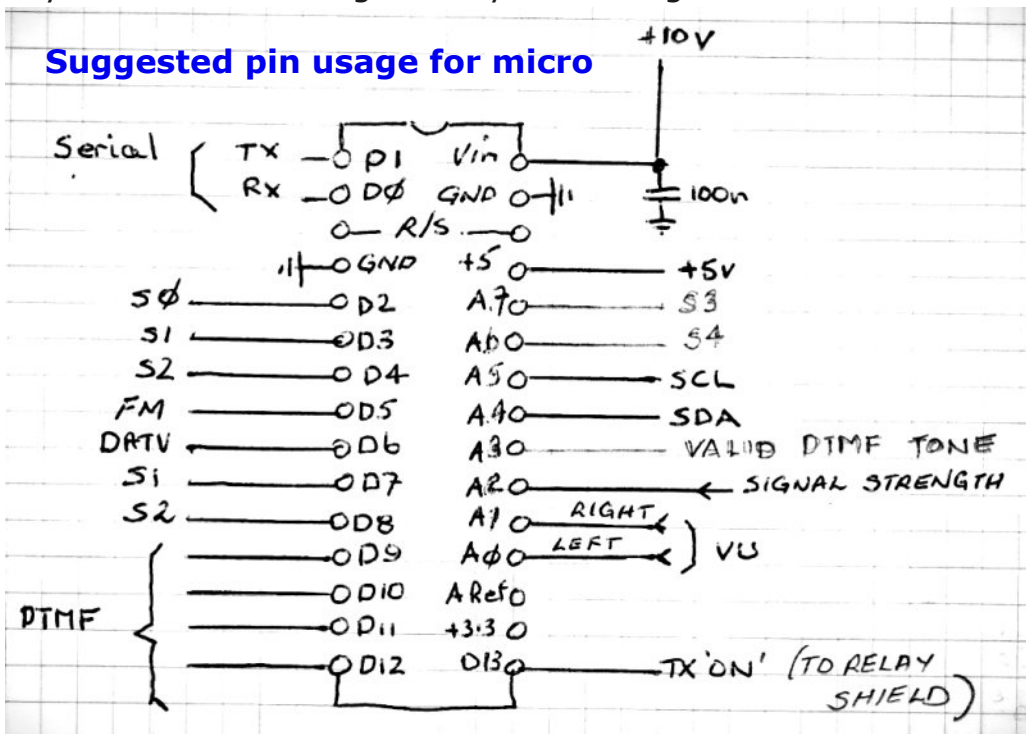 +10V
Suggested pin usage for micro
Serial TX D1 Vin
RX DØ GND 100n
R/S
GND +5 +5V
SØ D2 A.7 S3
S1 D3 A6 S4
S2 D4 A5 SCL
FM D5 A.4 SDA
DATV D6 A3 VALID DTMF TONE
Si D7 A2 SIGNAL STRENGTH
S2 D8 A1 RIGHT
D9 AØ LEFT VU
D10 A Ref
DTMF D11 +3.3
D12 D13 TX 'ON' (TO RELAY
SHIELD)